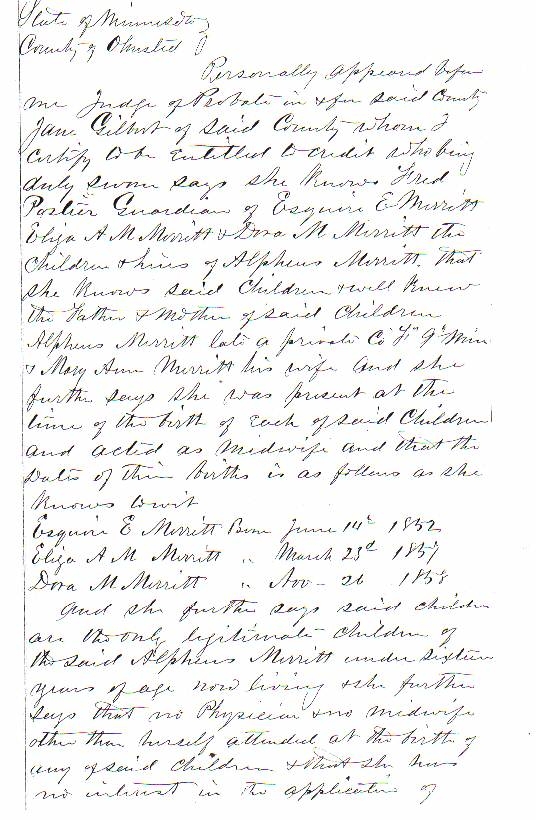 State of Minnesota
County of Olmsted
Personally appeared before
me Judge of Probate in & for said County
Jane Gilbert of said County whom I
certify to be entitled to credit who being
duly sworn says she knows Fred
Postier Guardian of Esquire E Merritt
Eliza A M Merritt & Dora M Merritt the
Children & heirs of Alpheus Merritt that
she knows said Children & well knew
the Father & Mother of said Children
Alpheus Merritt late a private Co "F" 9" Min
& Mary Ann Merritt his wife and she
further says she was present at the
time of the birth of each of said Children
and acted as midwife and that the
dates of their births is as follows as she
knows to wit
Esquire E Merritt Born June 14" 1852
Eliza A M Merritt " March 23d 1857
Dora M Merritt " Nov - 26 1858
And she further says said children
are the only legitimate children of
the said Alpheus Merritt under sixteen
years of age now living & she further
says that no Physician & no midwife
other than herself attended at the birth of
any of said children & that she has
no interest in the application of